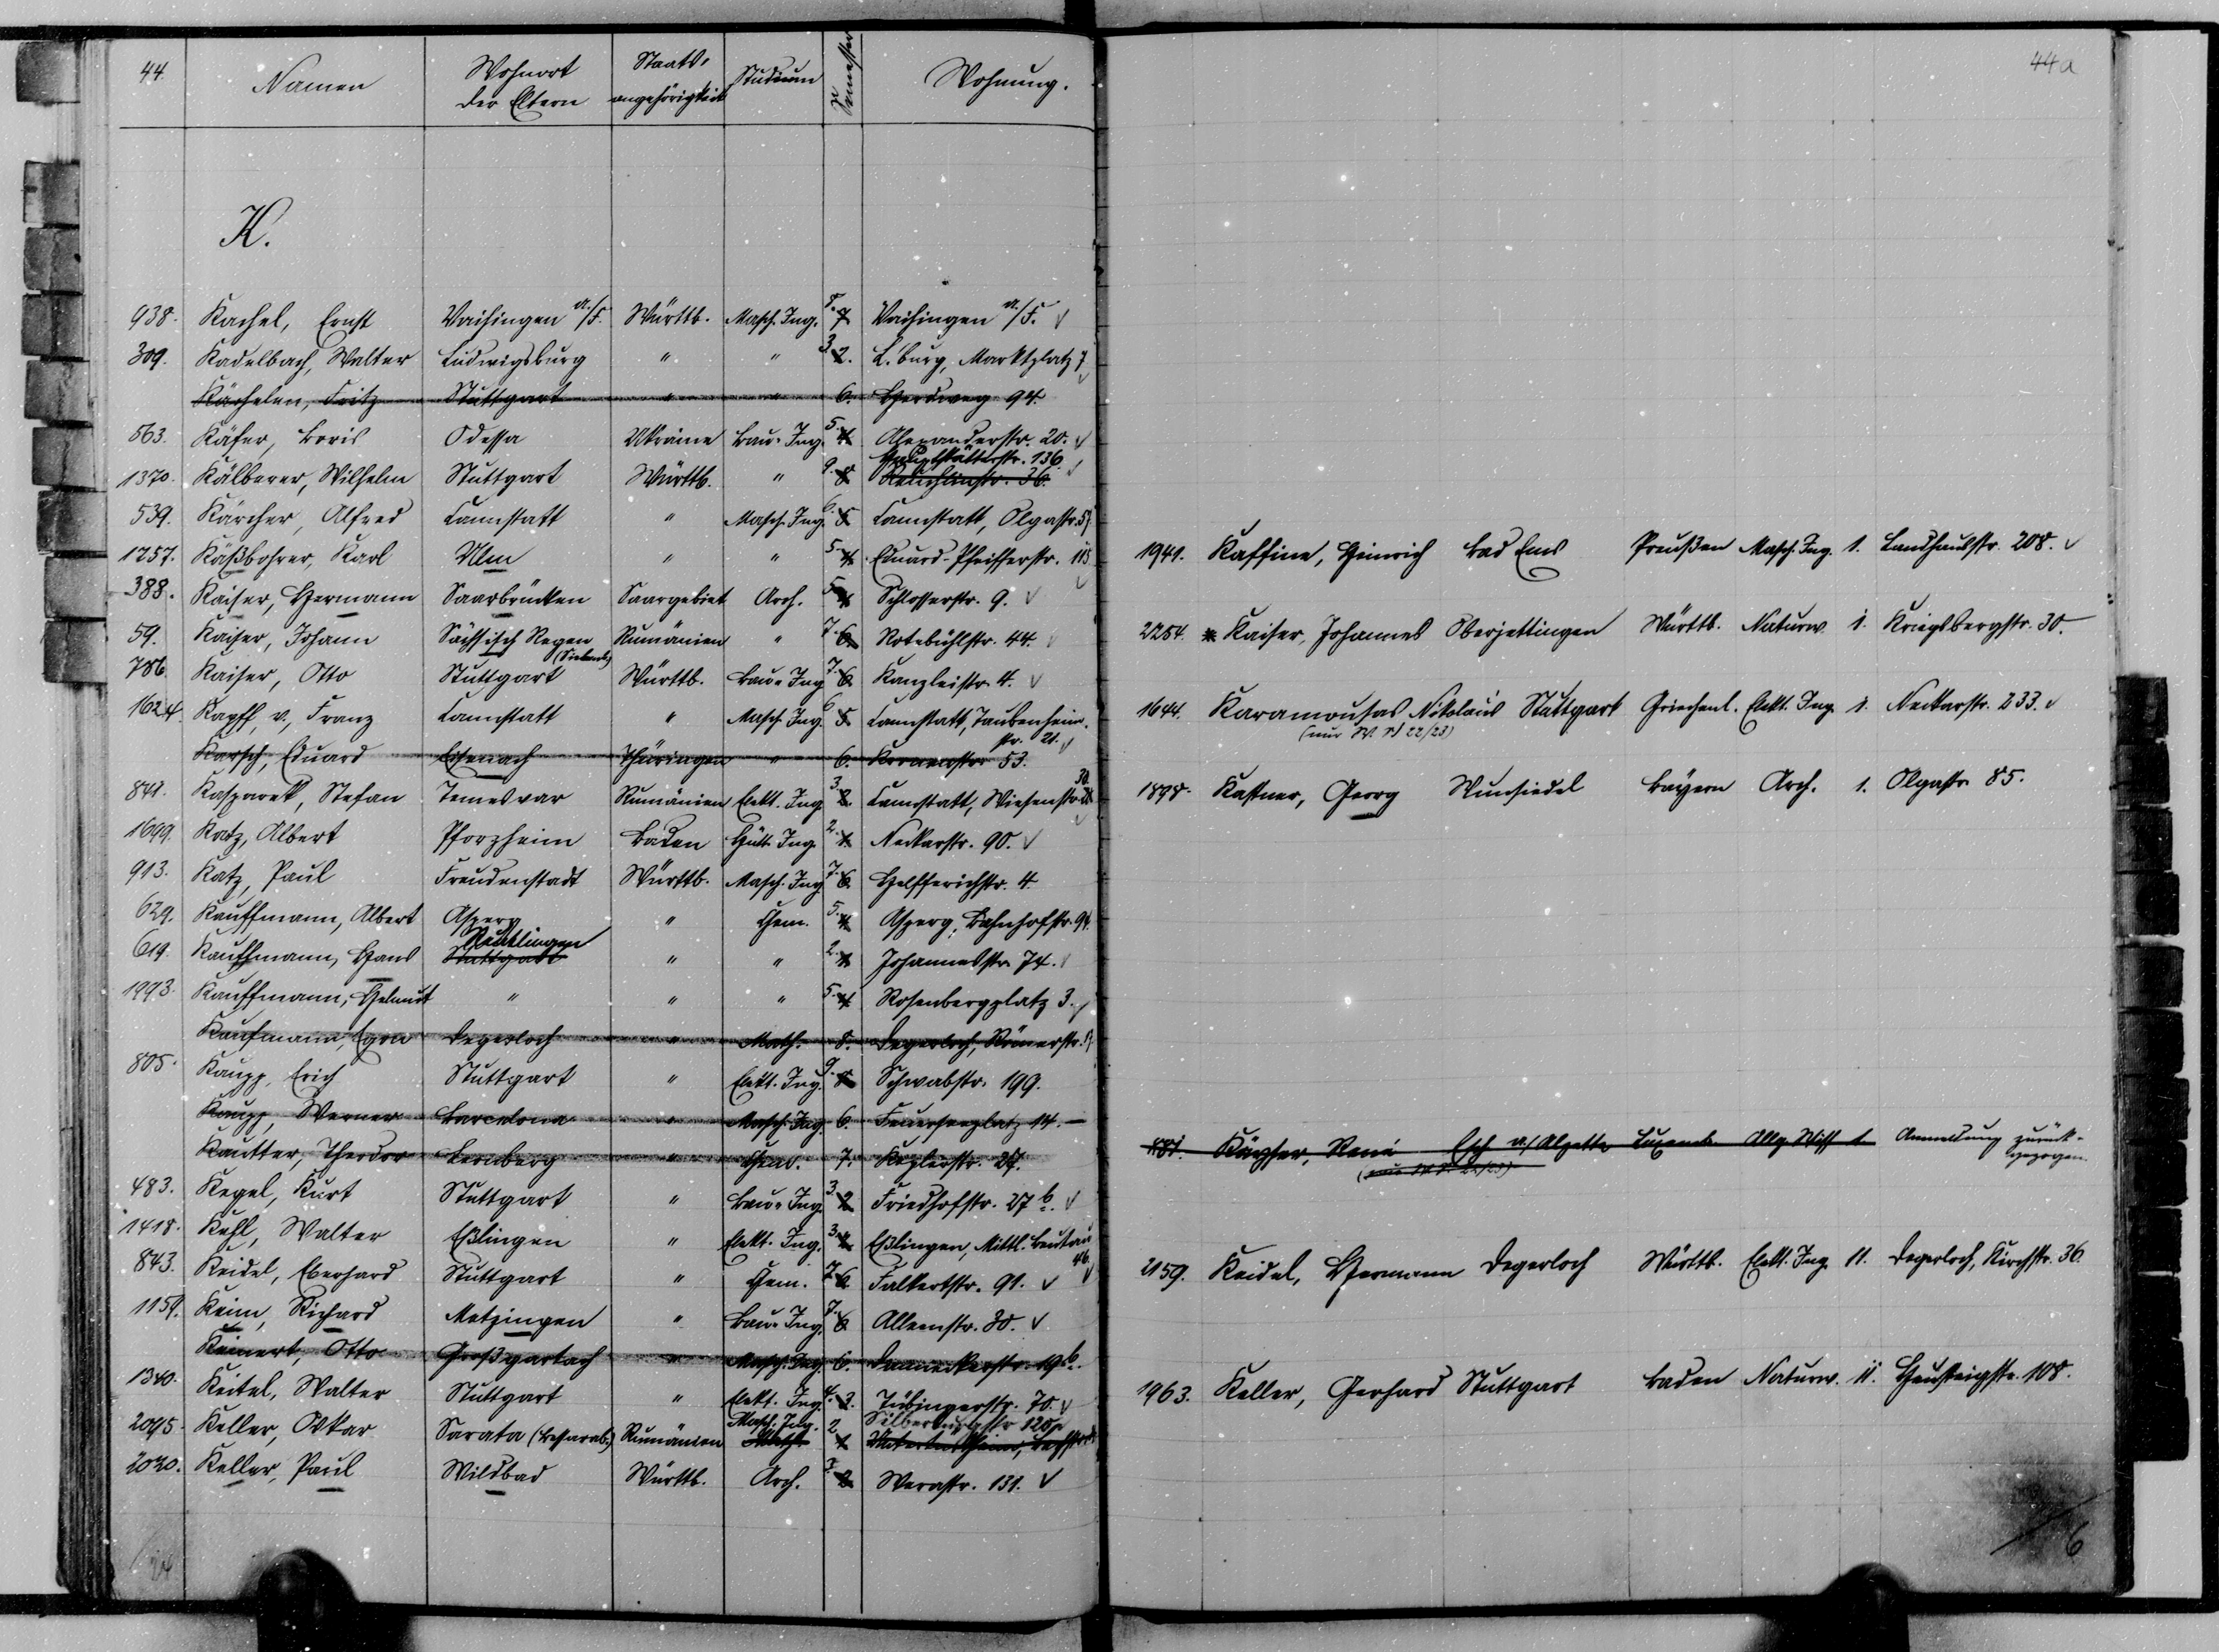 44. Namen Wohnort der Eltern Staats-angehörigkeit Studium Semester Wohnung.
K.
938. Kachel, Ernst Vaihingen a./F. Württb. Masch. Ing. 8. 7 Vaihingen a./F. √
309. Kadelbach, Walter Ludwigsburg " " 3. 2. L.'burg, Marktplatz 7 √
Kächelen, Fritz Stuttgart " " 6. Herdweg 94.
563. Käfer, Boris Odessa Ukraine Bau-Ing. 5. 4. Alexanderstr. 20. √
Hauptstätterstr. 136. √
1370. Kälberer, Wilhelm Stuttgart Württb. " 9. 8 Reuchlinstr. 36.
539. Kärcher, Alfred Cannstatt " Masch. Ing. 6. 5. Cannstatt, Olgastr. 57.
1257. Käßbohrer, Karl Ulm " " 5. 4. Eduard-Pfeifferstr. 115 √
388. Kaiser, Hermann Saarbrücken Saargebiet Arch. 5. 4 Schlosserstr. 9. √
59. Kaiser, Johann Sächsisch Regen Rumänien " 7. 6. Rotebühlstr. 44. √
(Siebenb.)
786. Kaiser, Otto Stuttgart Württb. Bau-Ing 7. 6. Kanzleistr. 4. √
1624. Kapff, v., Franz Cannstatt " Masch. Ing. 6 5. Cannstatt, Taubenheim-
str. 21. √
Karsch, Eduard Eisenach Thüringen " 6. 53.
841. Kasparek, Stefan Temesvar Rumänien Elekt. Ing. 3. 2. Cannstatt, Wiesenstr. 30 √
1699. Katz, Albert Pforzheim Baden Hütt. Ing. 2. 1. Neckarstr. 90. √
913. Katz, Paul Freudenstadt Württb. Masch. Ing. 7. 6. Helfferichstr. 4.
629. Kauffmann, Albert Asperg " Chem. 5. 4 Asperg, Bahnhofstr. 94.
Reutlingen
619. Kauffmann, Hans Stuttgart " " 2. 1. Johannesstr. 74. √
1993. Kauffmann, Helmut " " " 5. 4 Rosenbergplatz 3. √
Kaufmann, Egon Degerloch " Math. 8. Degerloch, Römerstr.
805. Kaupp, Erich Stuttgart " Elekt. Ing. 9. 8 Schwabstr. 199.
Kaupp, Werner Barcelona " Masch. Ing. 6. Feuerseeplatz 14. —
Kautter, Theodor Bernberg " Chem. 7. Keplerstr. 27.
483. Kegel, Kurt Stuttgart " Bau-Ing. 3. 2 Friedhofstr. 27 b. √
1418. Kehl, Walter Eßlingen " Elekt. Ing. 3. Eßlingen, Mittl. Beutau
46. √
843. Keidel, Eberhard Stuttgart " Chem. 7. 6. Falkertstr. 91. √
1159. Keim, Richard Metzingen " Bau-Ing. 7. 6. Alleenstr. 30. √
Keinert, Otto Großgartach " Masch. Ing. 6. Danneckerstr. 19 b.
1340. Keitel, Walter Stuttgart " Elekt. Ing. 4. 3. Tübingerstr. 70. √
Masch. Ing. Silberburgstr 125
2095. Keller, Oskar Sarata (Bessarab.) Rumänien Math 2 1
2020. Keller, Paul Wildbad Württb. Arch. 3. 2 Werastr. 131. √
44a
1941. Kaffine, Heinrich Bad Ems Preußen Masch. Ing. 1. Landhausstr. 208. √
2254. * Kaiser, Johannes Oberjettingen Württb. Naturw. 1. Kriegsbergstr. 30.
1644. Karamousas, Nikolaus Stuttgart Griechenl. Elekt. Ing. 1. Neckarstr. 233. √
(nur W. S 22/23)
1898. Kastner, Georg Wunsiedel Bayern Arch. 1. Olgastr. 85.
Kayser, René Esch a./Alzette Luxemb. Allg. Wiss. 1 Anmeldung zurück-
gezogen.
(nur W. S. 22/23)
2159. Keidel, Hermann Degerloch Württb. Elekt. Ing. 11. Degerloch, Kirchstr. 36.
1963. Keller, Gerhard Stuttgart Baden Naturw. 11. Heusteigstr. 108.
6
24